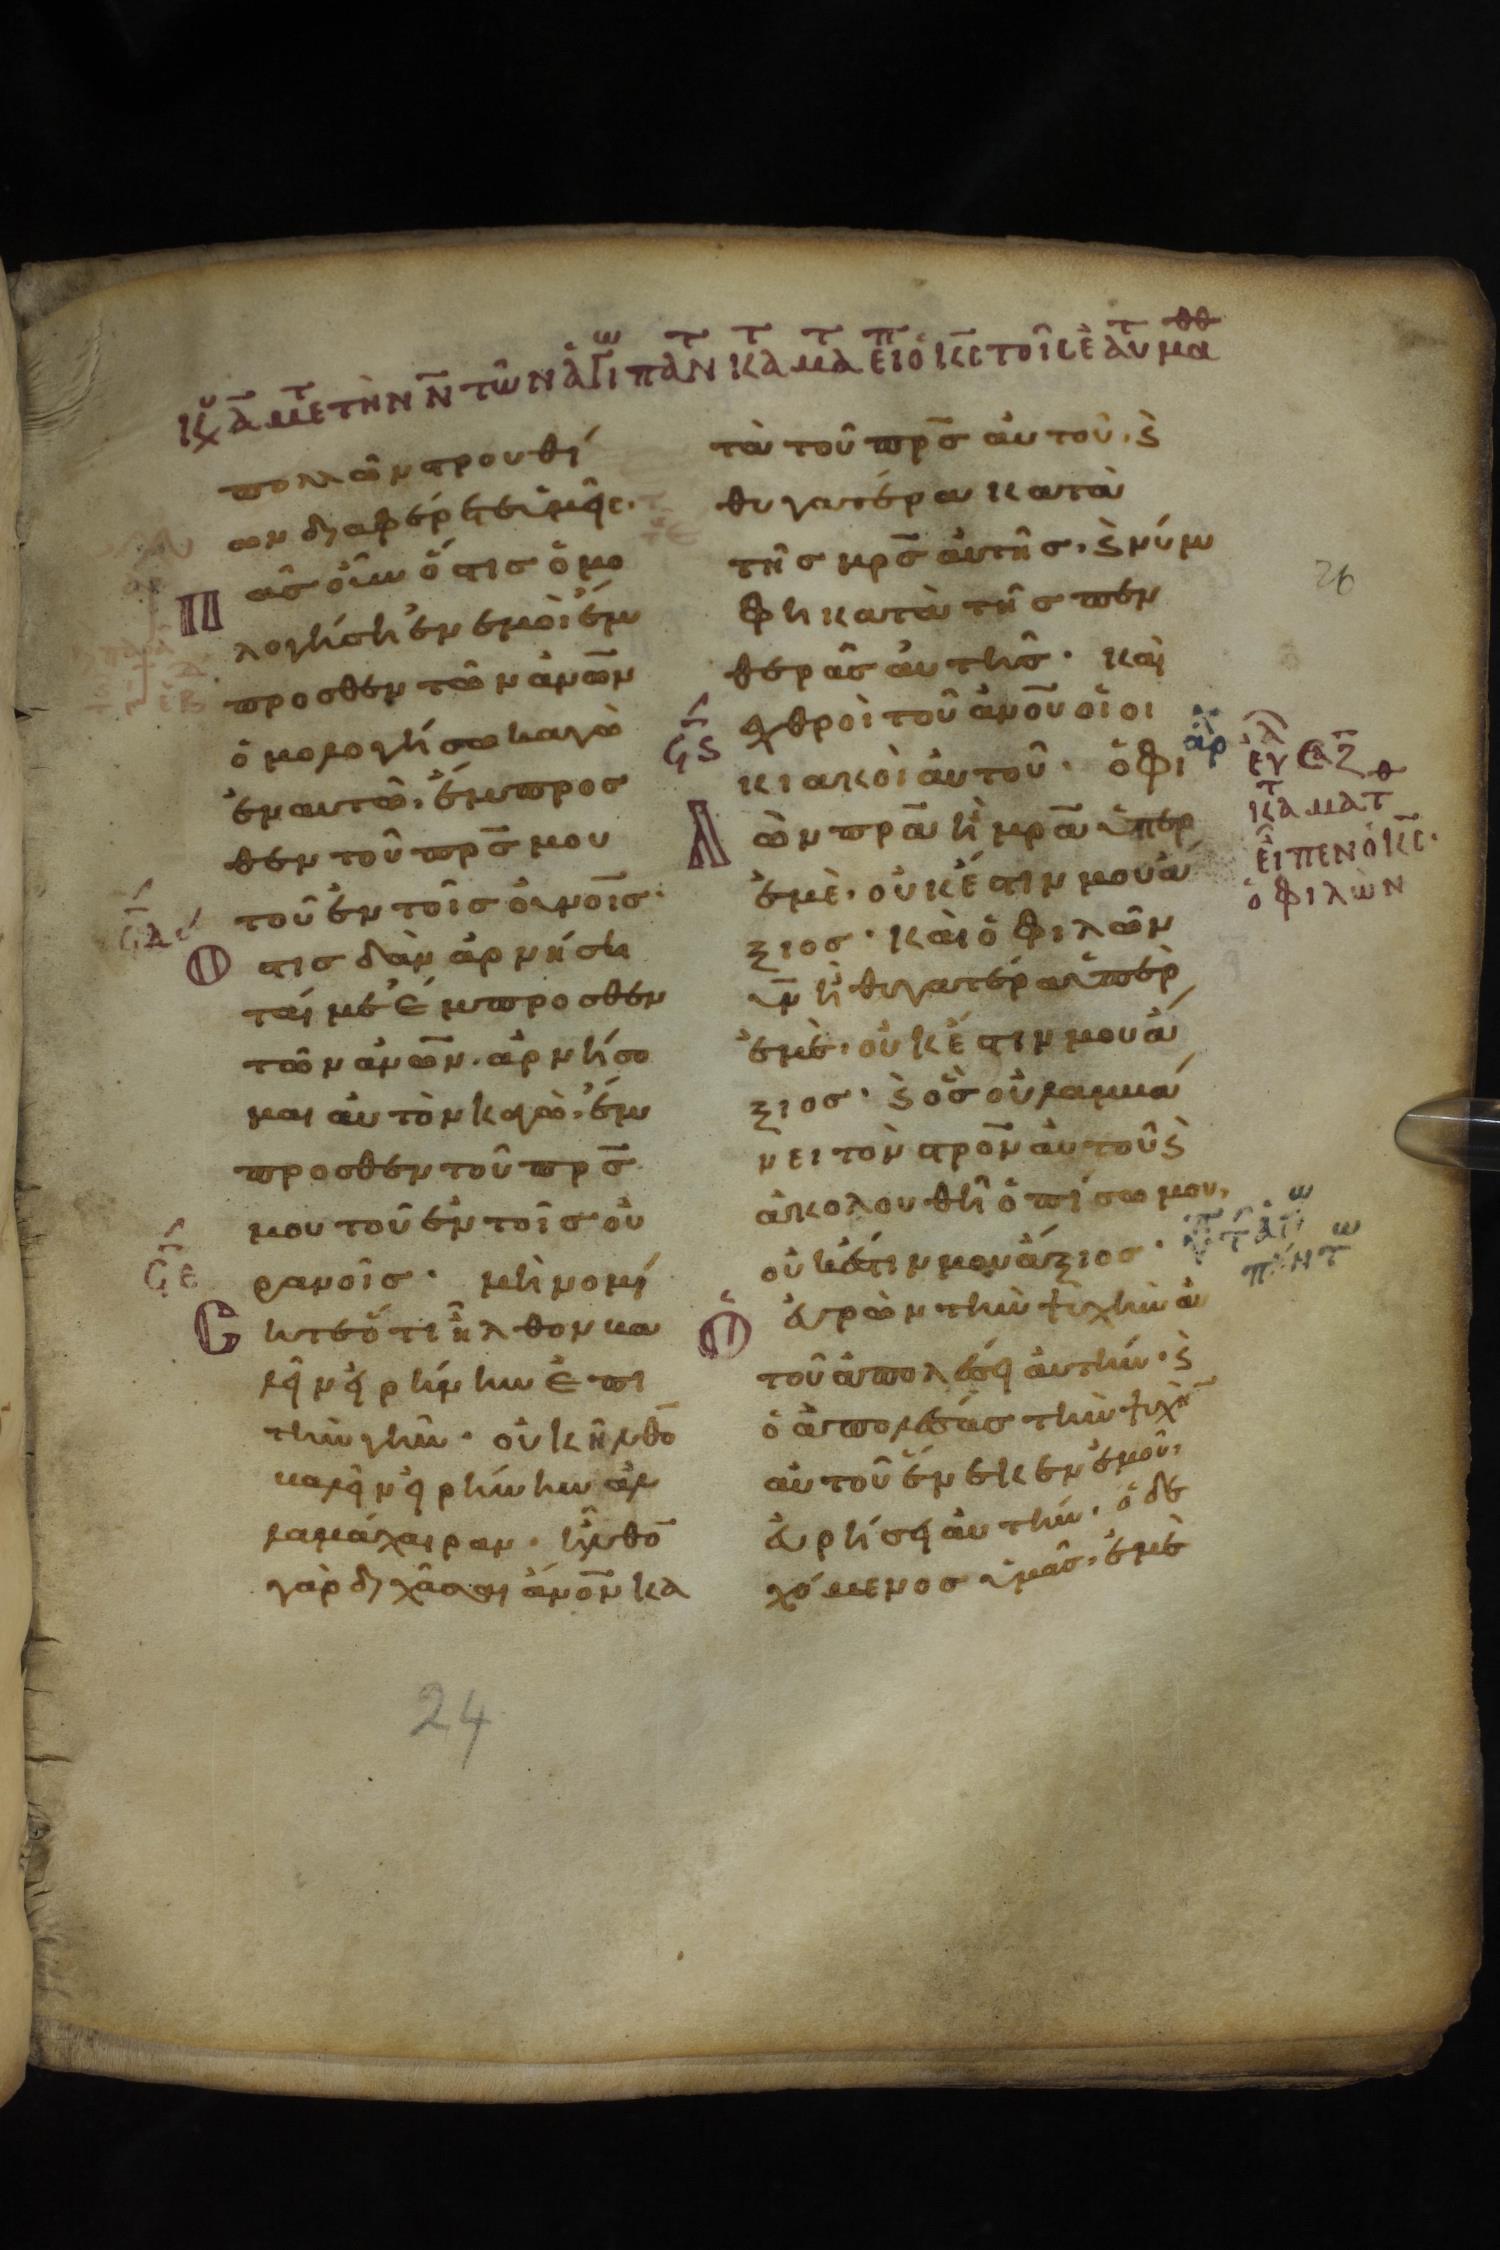 πολλῶν στρουθί
ων διαφέρεται ὑμεῖς.
Πᾶς οὖν ὅστις ὁμο
λογήσῃ ἐν ἐμοὶ ἔμ
προσθεν τῶν ἀνω̅ν
ὁμολογήσω καγὼ
ἐν αυτῶ, ἔμπρος
θεν τοῦ πρ̅σ μου
τοῦ ἐν τοῖς οὐνο̅ις·
Ὅστις δὰν ἀρνήση
ταί με ἔμπροσθεν
τῶν ἀνω̅ν. ἀρνήσο
μαι αὐτὸν καγὼ, ἔμ
προσθεν τοῦ πρ̅σ
μου τοῦ ἐν τοῖς οὐ
ρανοῖς· μὴ νομί
σητε ὅτι ἦλθον βα
λεῖν εἰρήνην ἐπι
τὴν γῆν· οὐκ ἦλθο̅
βαλεῖν εἰρήνην ἀλ
λα μάχαιραν· ἦλθο̅
γὰρ διχᾶσαι ἄνο̅ν κα
τὰ τοῦ πρ̅σ αὐτοῦ, ϗ
θυγατέρα κατὰ
τῆς μρ̅σ αὐτῆς, ϗ νύμ
φη κατὰ τῆς πεν
θερᾶς αὐτῆς· καὶ
ἐχθροὶ τοῦ ἀνο̅υ οἱ οι
κιακοὶ αὐτοῦ· ὁ φι
λὼν πρ̅α ἢ μρ̅α ὑπέρ
ἐμὲ, οὐκ ἔστιν μου ἄ
ξιος· καὶ ὁ φιλῶν
υ̅ν ἢ θυγατέρα ὑπὲρ
ἐμὲ, οὐκ ἔστιν μου ἄ
ξιος· ϗ ὃς οὐ λαμμά
νει τὸν στρο̅ν αὐτοῦ ϗ
ἀκολουθῆ ὀπίσω μου,
οὐκ ἔστιν μου ἄξιος·
Ὁ εὑρὼν τὴν ψυχὴν αὐ
τοῦ ἀπολέσει αὐτήν· ϗ
ὁ ἀπολέσας τὴν ψυχὴ̅
αὐτοῦ ἕνεκεν ἐμοῦ,
εὑρήσει αὐτήν· ὁ δε
χόμενος ὑμᾶς, ἐμὲ
εἰπεν ὁ κ̅ς·
ὁ φιλὼν
26
24